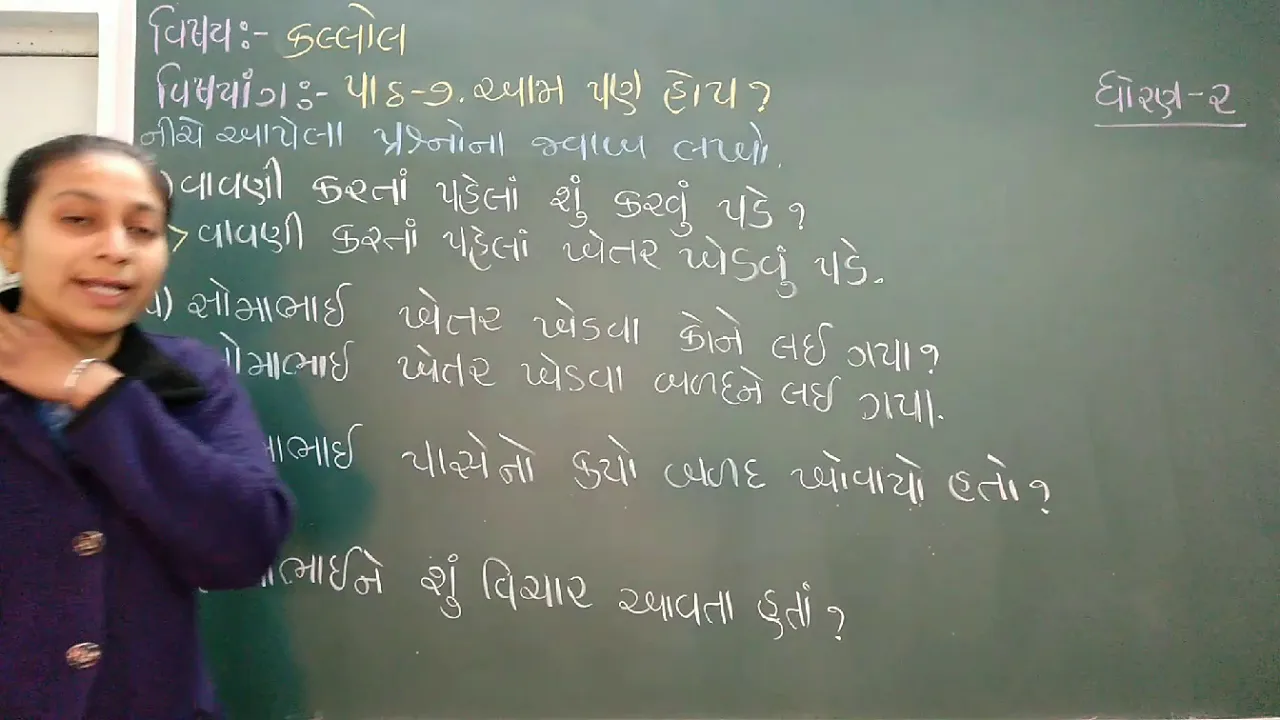 વિષય:- કલ્લોલ
વિષયાંગ:- પાઠ-૭. આમ પણ હોય ?
ધોરણ-૨
નીચે આપેલા પ્રશ્નોના જવાબ લખો.
) વાવણી કરતાં પહેલાં શું કરવું પડે ?
> વાવણી કરતાં પહેલાં ખેતર ખેડવું પડે.
૫) સોમાભાઈ ખેતર ખેડવા કોને લઈ ગયા ?
ોમાભાઈ ખેતર ખેડવા બળદને લઈ ગયા.
ાભાઈ પાસેનો કયો બળદ ખોવાયો હતો ?
ાભાઈને શું વિચાર આવતા હતાં ?